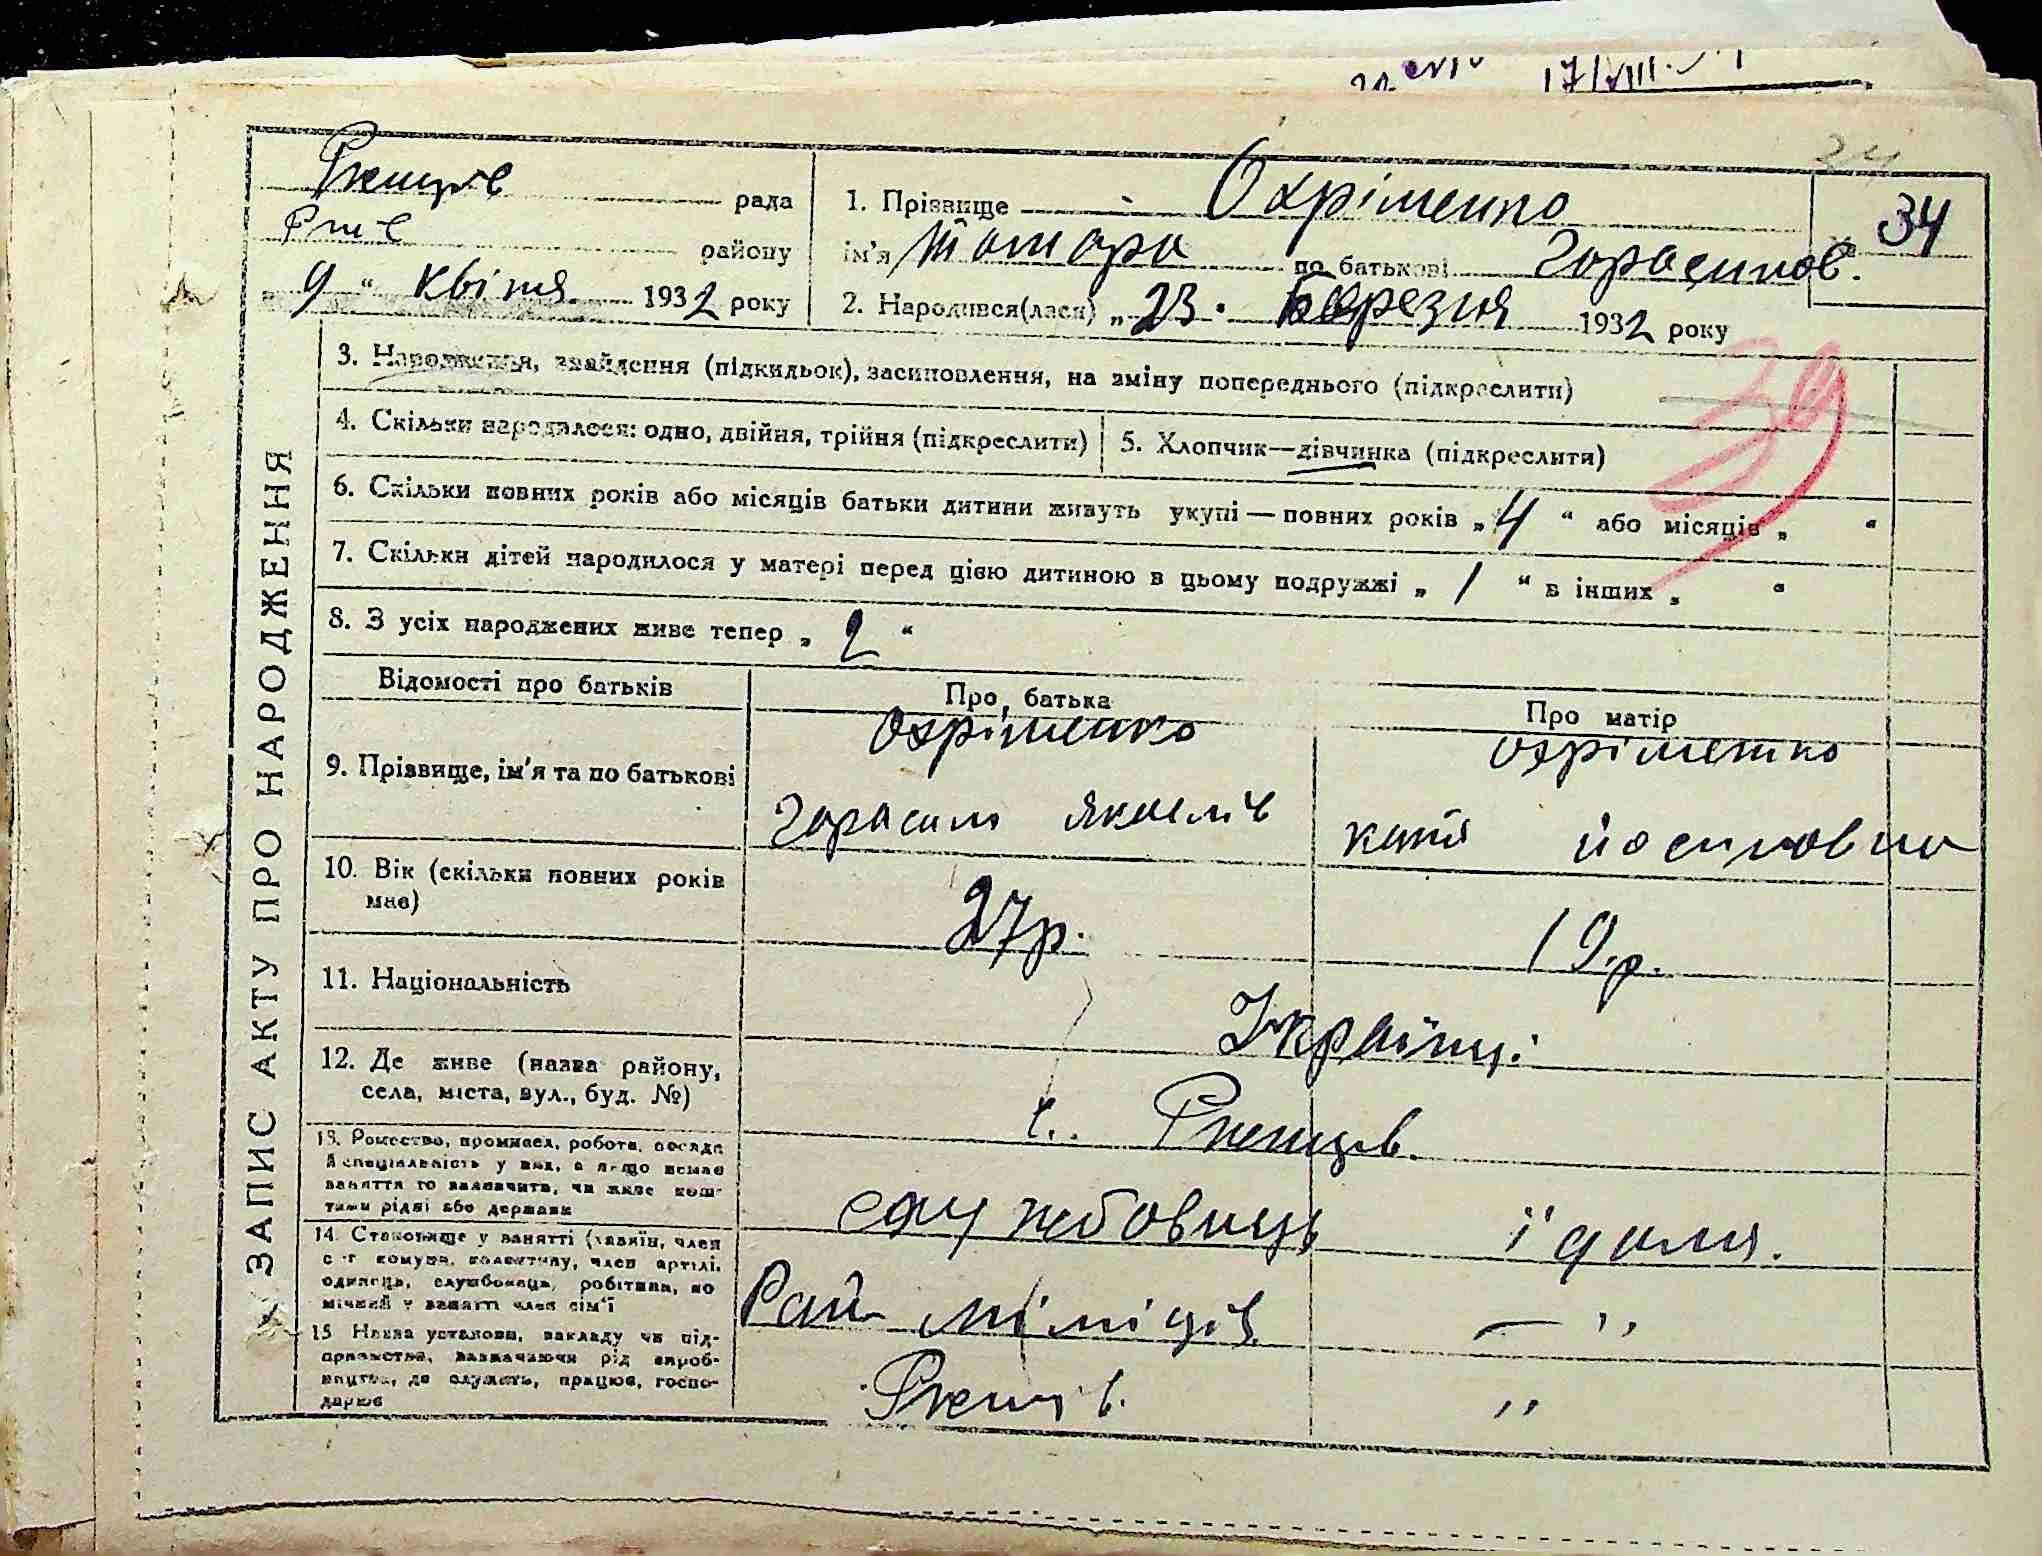 17/VIII.
34
Ржищів рада
Рж-в району
„9“ квітня 1932 року
1. Прізвище Охріменко
ім'я Тамара по батькові Гарасимов.
34
2. Народився(лася) „23. Березня 1932 року
39
3. Народження, знайдення (підкидьок), засиновлення, на зміну попереднього (підкреслити)
4. Скільки народилося: одно, двійня, трійня (підкреслити)
5. Хлопчик—дівчинка (підкреслити)
6. Скільки повних років або місяців батьки дитини живуть укупі — повних років „4“ або місяців „ “
7. Скільки дітей народилося у матері перед цією дитиною в цьому подружжі „1“ в інших „ “
8. З усіх народжених живе тепер „2“
ЗАПИС АКТУ ПРО НАРОДЖЕННЯ
Відомості про батьків
Про батька
Про матір
9. Прізвище, ім'я та по батькові
Охріменко
Гарасим Яковлів
Охріменко
Катя Йосиповна
10. Вік (скільки повних років
має)
27р.
19.р.
11. Національність
Українці
12. Де живе (назва району,
села, міста, вул., буд. №)
с. Ржищів.
13. Ромество, промисел, робота, посада
й спеціальність у них, а якщо немає
заняття то зазначити, чи живе кош-
тами рідні або держави
служbовець
їдаля.
14. Становище у занятті (хазяїн, член
с-г комуни, колективу, член артілі,
одинець, службовець, робітник, по
мічний у занятті член сім'ї
Рай міліція.
— ''
15 Назва установи, закладу чи під-
приємства, зазначаючи рід вироб-
ництва, де служить, працює, госпо-
дарює
Ржищів.
''